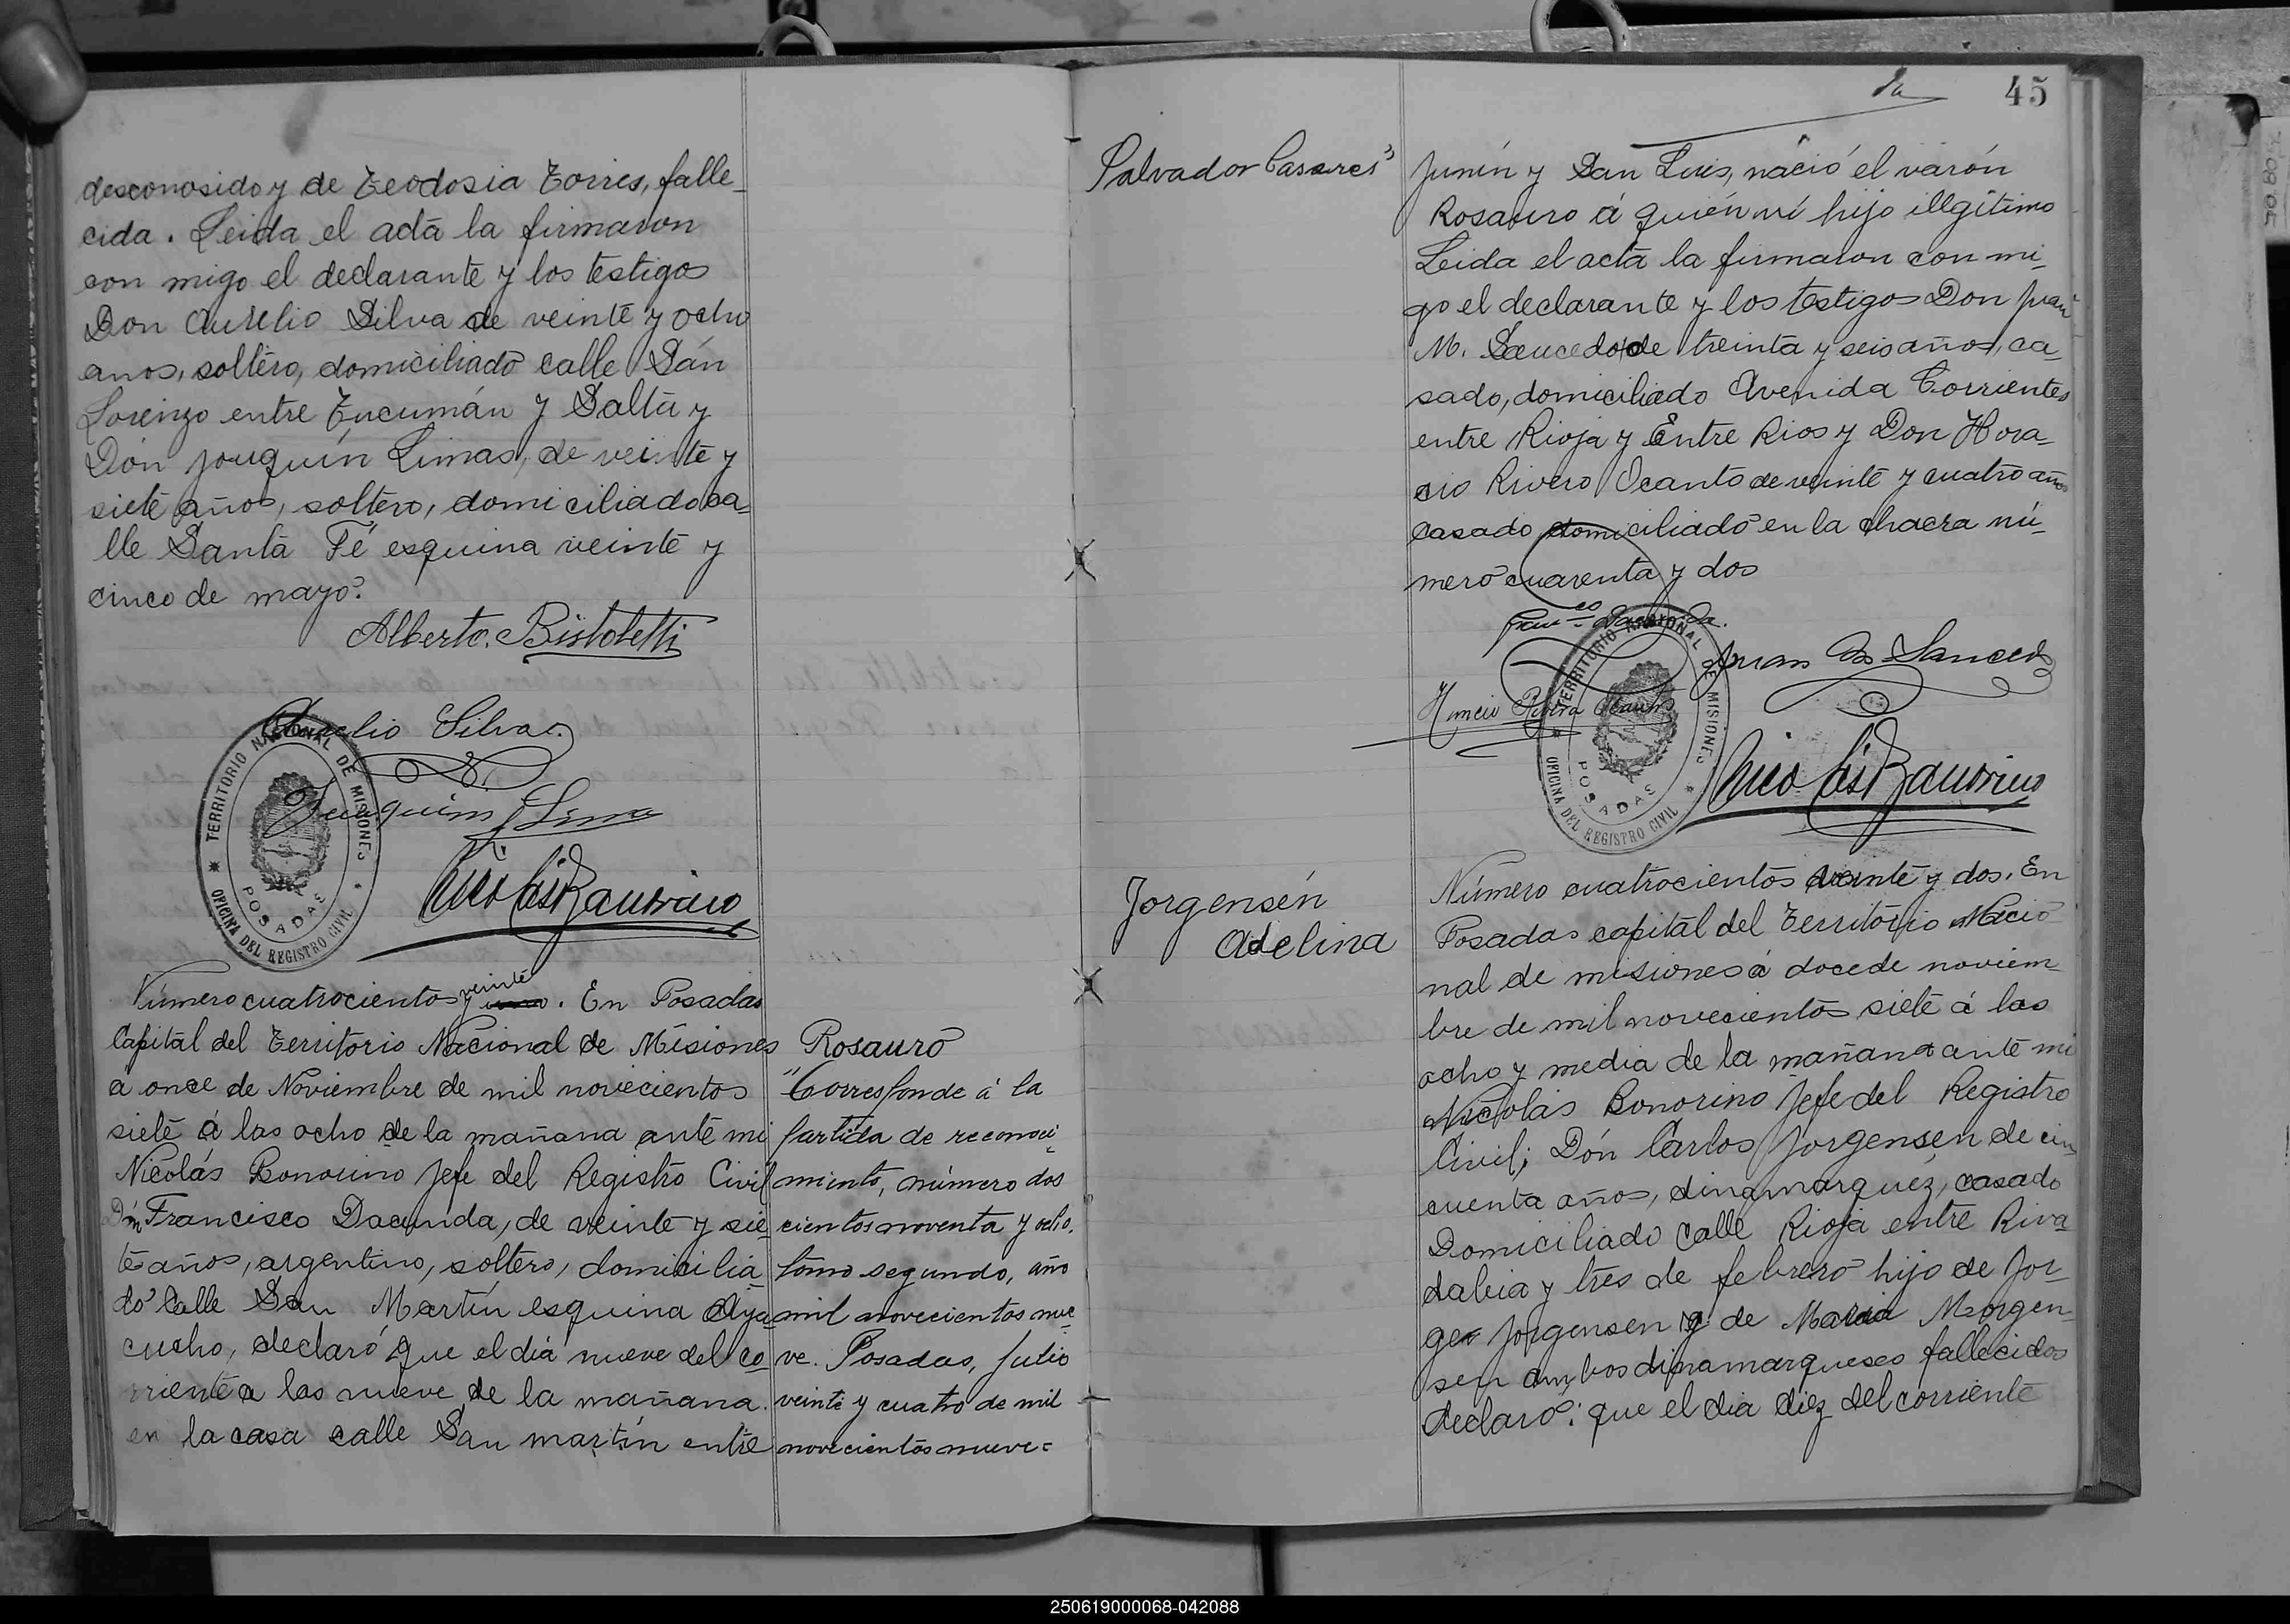 desconosido y de Teodosia Torres, falle_
cida. Leida el acta la firmaron
con migo el declarante y los testigos
Don Aurelio Silva de veinte y ocho
anos, soltero, domiciliado calle San
Lorenzo entre Tucumán y Salta y
Don Jouquín Limas, de veinte y
siete años, soltero, domiciliado ca_
lle Santa Fé esquina veinte y
cinco de mayo.
Alberto. Bistoletti
Aurelio Silva.
Juaquin Lima
Nicolás Bonorino
TERRITORIO NACIONAL DE MISIONES
POSADAS
OFICINA DEL REGISTRO CIVIL
Número cuatrocientos y veinte uno. En Posadas
Capital del Territorio Nacional de Misiones
a once de Noviembre de mil novecientos
siete á las ocho de la mañana ante mi
Nicolás Bonorino Jefe del Registro Civil
Don Francisco Dacunda, de veinte y sie_
te años, argentino, soltero, domicilia
do Calle San Martín esquina Aya_
cucho, declaró que el día nueve del co_
rriente a las nueve de la mañana.
en la casa calle San martín entre
Rosauro
"Corresponde á la
partida de reconoci_
miento, número dos
cientos noventa y ocho.
tomo segundo, año
mil novecientos nue_
ve. Posadas, Julio
veinte y cuatro de mil
novecientos nueve=
45
Salvador Casares
Junín y San Luis, nació el varón
Rosauro á quién ví hijo illgítimo
Leida el acta la firmaron con mi_
go el declarante y los testigos Don Juan
M. Saucedo de treinta y seis años, ca_
sado, domiciliado Avenida Corrientes
entre Rioja y Entre Rios y Don Hora_
cio Rivero Ocanto de veinte y cuatro años
casado domiciliado en la chacra nú_
mero cuarenta y dos
Juan M. Saucedo
Nicolás Bonorino
TERRITORIO NACIONAL DE MISIONES
POSADAS
OFICINA DEL REGISTRO CIVIL
Jorgensén
Adelina
Número cuatrocientos veinte y dos. En
Posadas capital del Territorio Nacio
nal de misiones á doce de noviem_
bre de mil novecientos siete á las
ocho y media de la mañana ante mi
Nicolás Bonorino Jefe del Registro
Civil; Dón Carlos Jorgensen de cin_
cuenta años, dinamarquéz, casado
Domiciliado calle Rioja entre Riva
dabia y tres de febrero hijo de Jor_
ger Jorgensen y de Maria Morgen_
sen ambos dinamarqueses fallecidos
declaró: que el dia diez del corriente
250619000068-042088